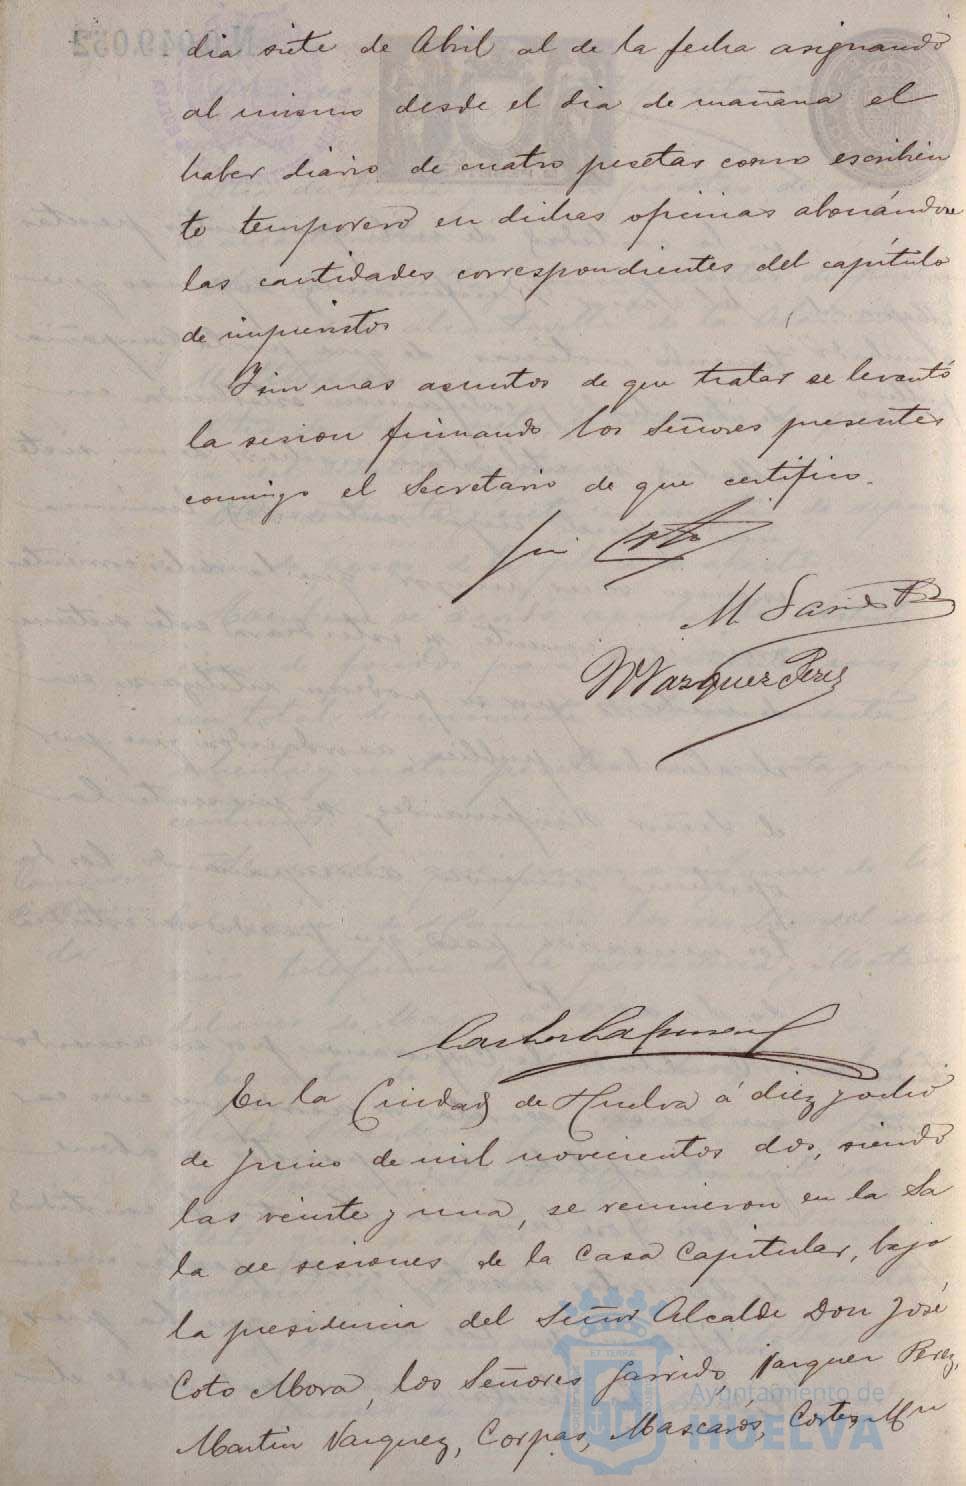 dia siete de Abril al de la fecha asignando
al mismo desde el dia de mañana el
haber diario de cuatro pesetas como escribien
te temporero en dichas oficinas abonándose
las cantidades correspondientes del capítulo
de imprevistos
Y sin mas asuntos de que tratar se levantó
la sesion firmando los Señores presentes
conmigo el Secretario de que certifico.
M Garrido P
M Vazquez Perez
En la Ciudad de Huelva á diez y ocho
de Junio de mil novecientos dos, siendo
las veinte y una, se reunieron en la Sa
la de sesiones de la Casa Capitular, bajo
la presidencia del Señor Alcalde Don José
Coto Mora, los Señores Garrido, Vazquez Perez,
Martin Vazquez, Corpas, Mascarós, Cortes, Mu
Ayuntamiento de
HUELVA